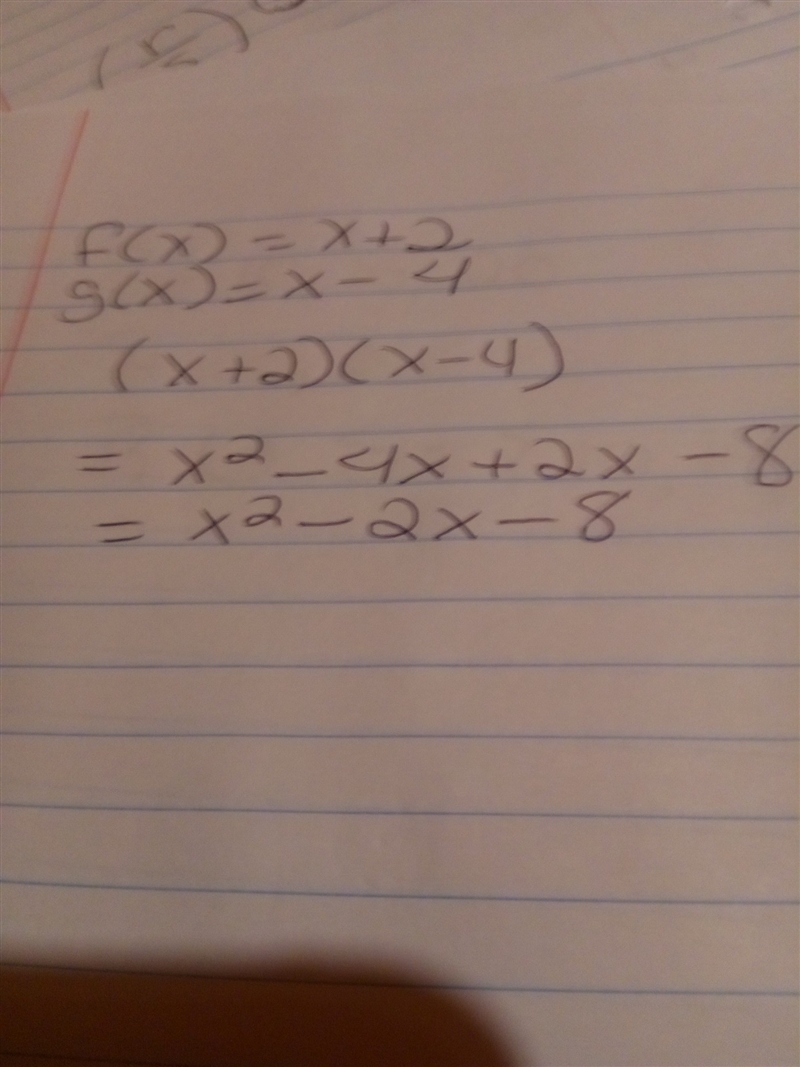 f(x) = x+2
g(x) = x - 4
(x+2)(x-4)
= x² - 4x + 2x - 8
= x² - 2x - 8